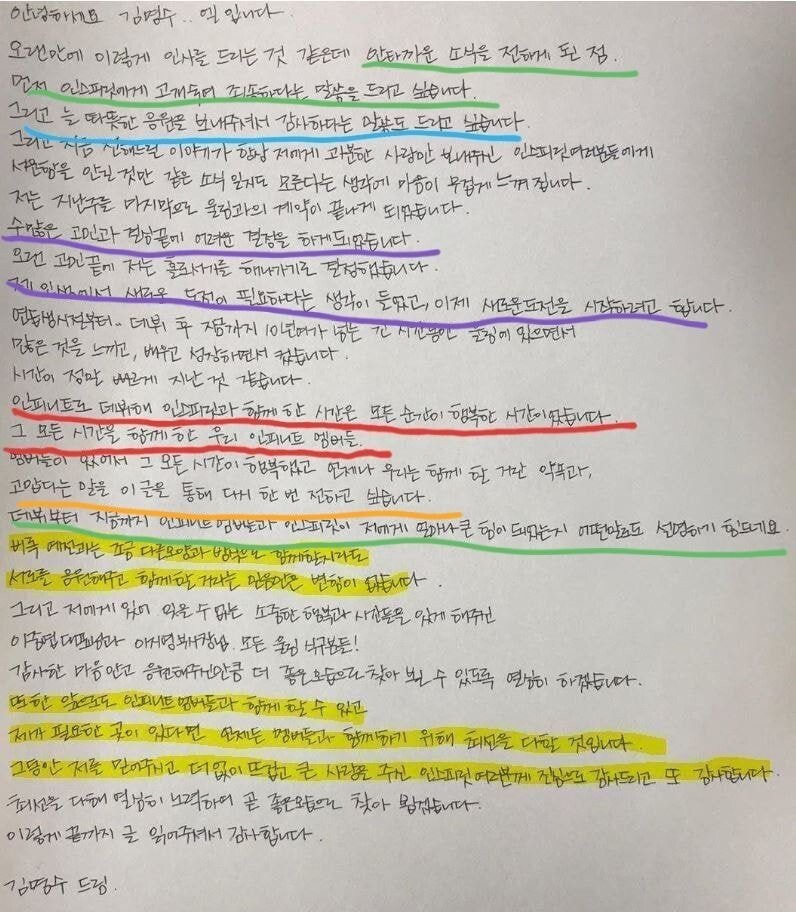 안녕하세요 김명수.. 엘 입니다.
오랜만에 이렇게 인사를 드리는 것 같은데 안타까운 소식을 전하게 된 점.
먼저 인스피릿에게 고개숙여 죄송하다는 말씀을 드리고 싶습니다.
그리고 늘 따뜻한 응원을 보내주셔서 감사하다는 말씀도 드리고 싶습니다.
그리고 지금 전해드릴 이야기가 항상 저에게 과분한 사랑만 보내주신 인스피릿여러분들에게
서운함을 안길 것만 같은 소식 일지도 모른다는 생각에 마음이 무겁게 느껴 집니다.
저는 지난주를 마지막으로 울림과의 계약이 끝나게 되었습니다.
수많은 고민과 결심끝에 어려운 결정을 하게되었습니다.
오랜 고민끝에 저는 홀로서기를 해나가기로 결정했습니다.
제 인생에서 새로운 도전이 필요하다는 생각이 들었고, 이제 새로운도전을 시작하려고 합니다.
연습생시절부터.. 데뷔 후 지금까지 10년여가 넘는 긴 시간동안 울림에 있으면서
많은 것을 느끼고, 배우고 성장하면서 컸습니다.
시간이 정말 빠르게 지난 것 같습니다.
인피니트로 데뷔해 인스피릿과 함께 한 시간은 모든 순간이 행복한 시간이었습니다.
그 모든 시간을 함께 한 우리 인피니트 멤버들.
멤버들이 있어서 그 모든 시간이 행복했고 언제나 우리는 함께 할 거란 약속과,
고맙다는 말을 이 글을 통해 다시 한 번 전하고 싶습니다.
데뷔부터 지금까지 인피니트 멤버들과 인스피릿이 저에게 얼마나 큰 힘이 되었는지 어떤말로도 설명하기 힘드네요.
비록 예전과는 조금 다른모양과 방식으로 함께할지라도
서로를 응원해주고 함께 할 거라는 믿음만은 변함이 없습니다.
그리고 저에게 있어 잊을 수 없는 소중한 행복과 시간들을 있게 해주신
이중엽대표님과 이지영부사장님. 모든 울림 식구분들!
감사한 마음안고 응원해주신만큼 더 좋은모습으로 찾아 뵐 수 있도록 열심히 하겠습니다.
또한 앞으로도 인피니트 멤버들과 함께 할 수 있고
제가 필요한 곳이 있다면 언제든 멤버들과 함께하기 위해 최선을 다할 것입니다.
그동안 저를 믿어주시고 더 없이 뜨겁고 큰 사랑을 주신 인스피릿 여러분께 진심으로 감사드리고 또 감사합니다.
최선을 다해 열심히 노력하여 곧 좋은모습으로 찾아 뵙겠습니다.
이렇게 끝까지 글 읽어주셔서 감사합니다.
김명수 드림.